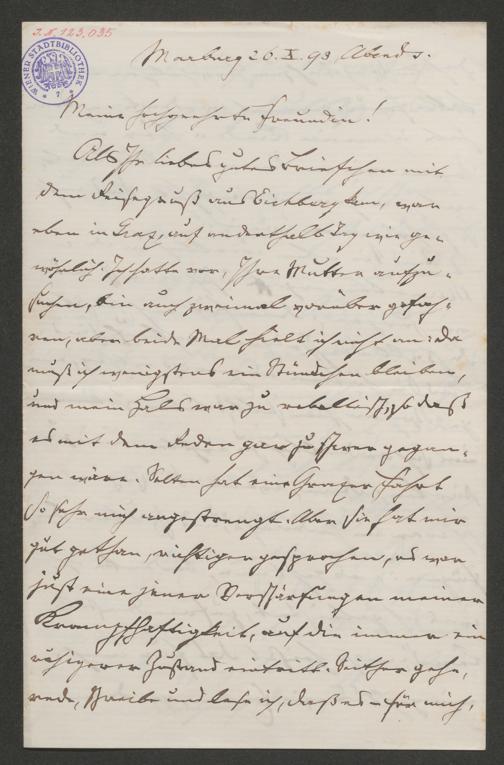 J. N. 123.035
WIENER STADTBIBLIOTHEK
Marburg 26. X. 93, Abends.
Meine hochgeehrte Freundin!
Als Ihr liebes gutes Briefchen mit
dem Reisegruß aus kam, war
eben in Graz, auf anderthalb Tag wie ge-
wöhnlich. Ich hatte vor, Ihre Mutter aufzu-
suchen, bin auch zweimal vorüber gefah-
ren, aber beide Mal hielt ich nicht an: da
muß ich wenigstens ein Stündchen bleiben,
und mein Hals war zu rebellisch, so daß
es mit dem Reden gar zu schwer gegan-
gen wäre. Selten hat eine Grazer Fahrt
so sehr mich angestrengt. Aber sie hat mir
gut gethan, richtiger gesprochen, es war
just eine jener Verschärfungen meiner
Krampfhaftigkeit, auf die immer ein
ruhigerer Zustand eintritt. Seither gehe,
rede, schreibe und lese ich, daß es – für mich,